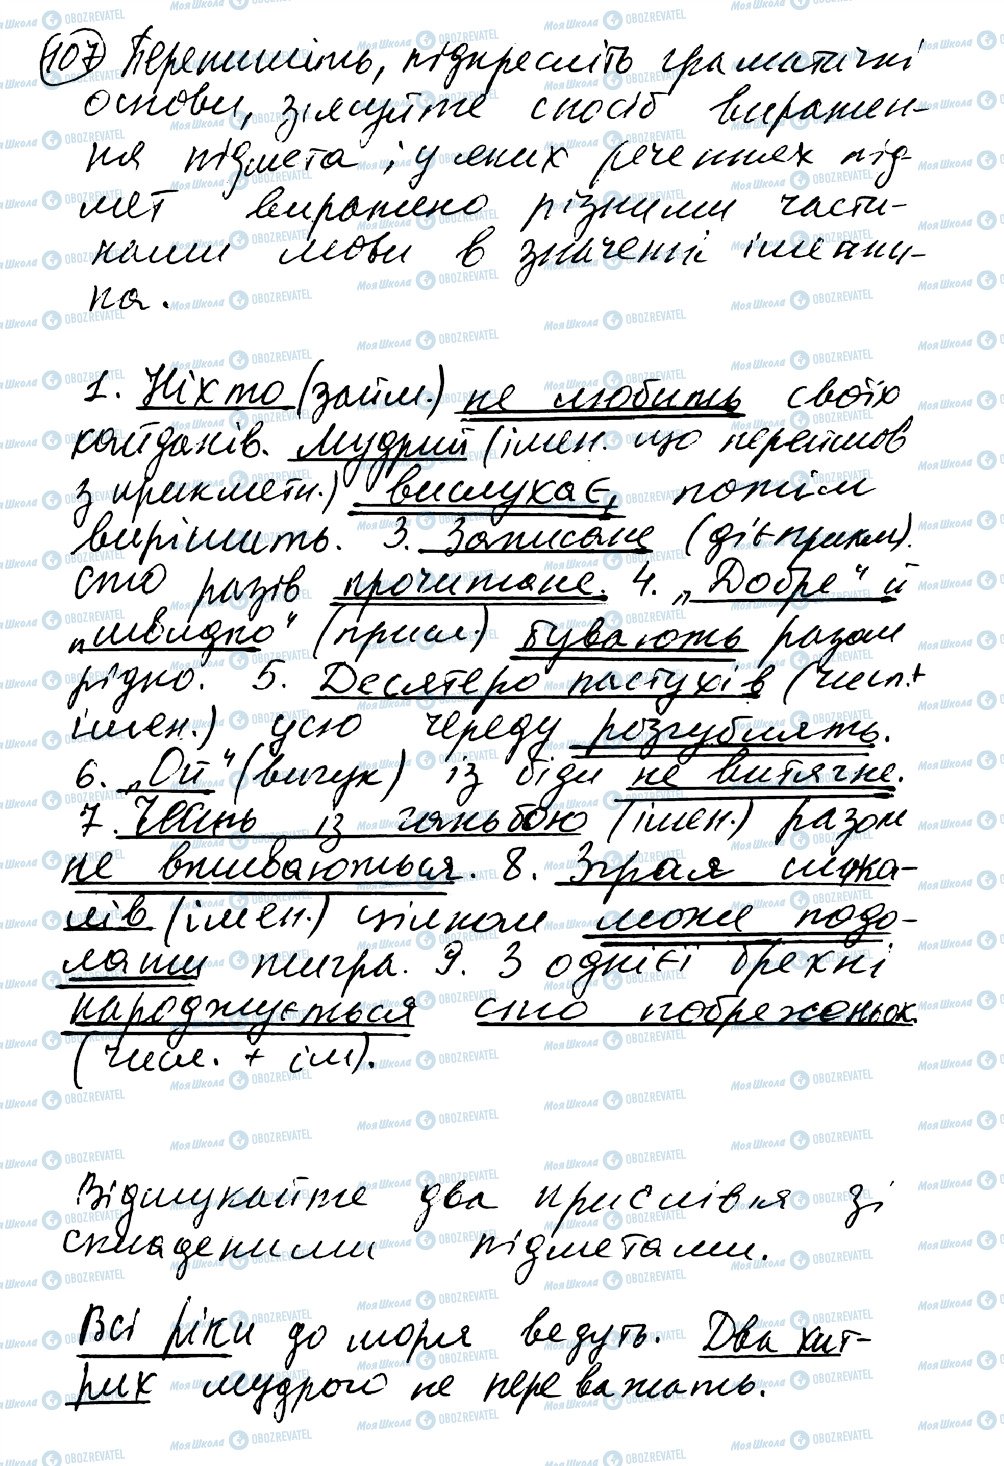 107 Перепишіть, підкресліть граматичні
основи, з'ясуйте спосіб виражен-
ня підмета; у яких реченнях під-
мет виражено різними части-
нами мови в значенні іменни-
ка.
1. Ніхто (займ.) не любить своїх
кайданів. Мудрий (імен. що перейшов
з прикметн.) вислухає, потім
вирішить. 3. Записане (дієприкм).
сто разів прочитане. 4. „Добре" й
„швидко" (присл.) бувають разом
рідко. 5. Десятеро пастухів (числ.+
імен.) усю череду розгублять.
6. „Ой" (вигук) із біди не витягне.
7. Честь із ганьбою (імен.) разом
не вживаються. 8. Зграя шака-
лів (імен.) цілком може подо-
лати тигра. 9. З однієї брехні
народжується сто побрехеньок.
(числ. + ім).
Відшукайте два прислівя зі
складеними підметами.
Всі ріки до моря ведуть. Два хит-
рих мудрого не переважать.